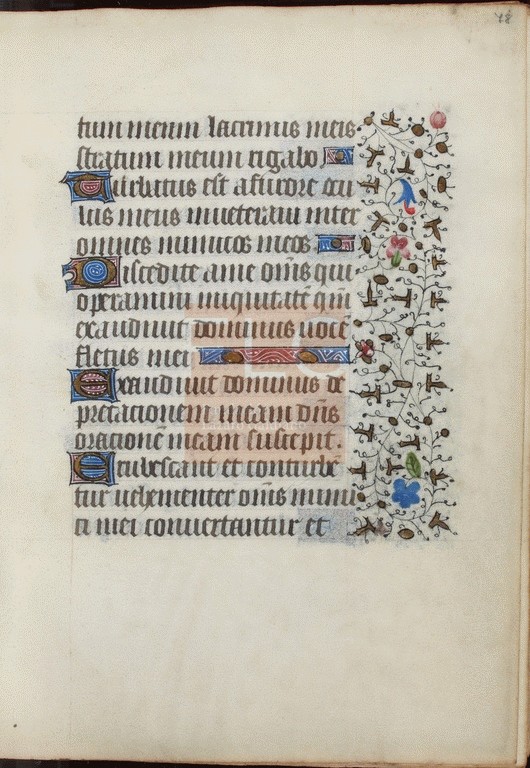 78
tum meum lacrimis meis
stratum meum rigabo
Turbatus est a furore ocu
lus meus inueteraui inter
omnes inimicos meos
Discedite a me om̄s qui
operamini iniquitatē qm̄
exaudiuit dominus uocē
fletus mei
Exaudiuit dominus de
precationem meam dn̄s
orationē meam suscepit.
Erubescant et conturbē
tur uehementer om̄s inimi
ci mei conuertantur et